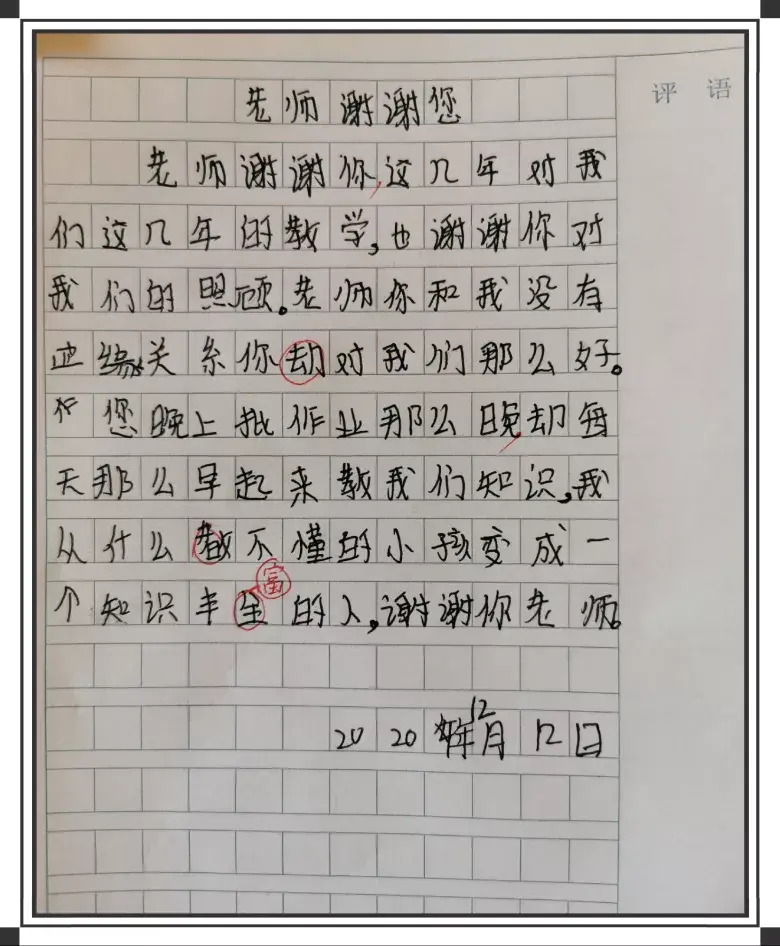 评 语
老师谢谢您
老师谢谢你,这几年对我
们这几年的教学,也谢谢你对
我们的照顾。老师你和我没有
关系你却对我们那么好。
您晚上批作业那么晚,却每
天那么早起来教我们知识,我
从什么都不懂的小孩变成一
富
个知识丰的人,谢谢你老师。
12
2020年月12日